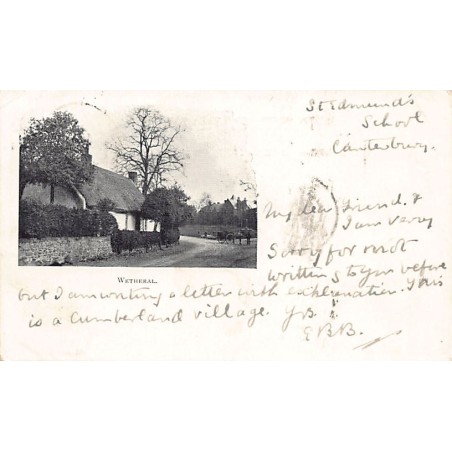 St Edmund's
School
Canterbury.
My dear friend. I
I am very
Sorry for not
written to you before
but I am writing a letter with explanation. This
is a Cumberland village. Y
E.B.B.
WETHERAL.